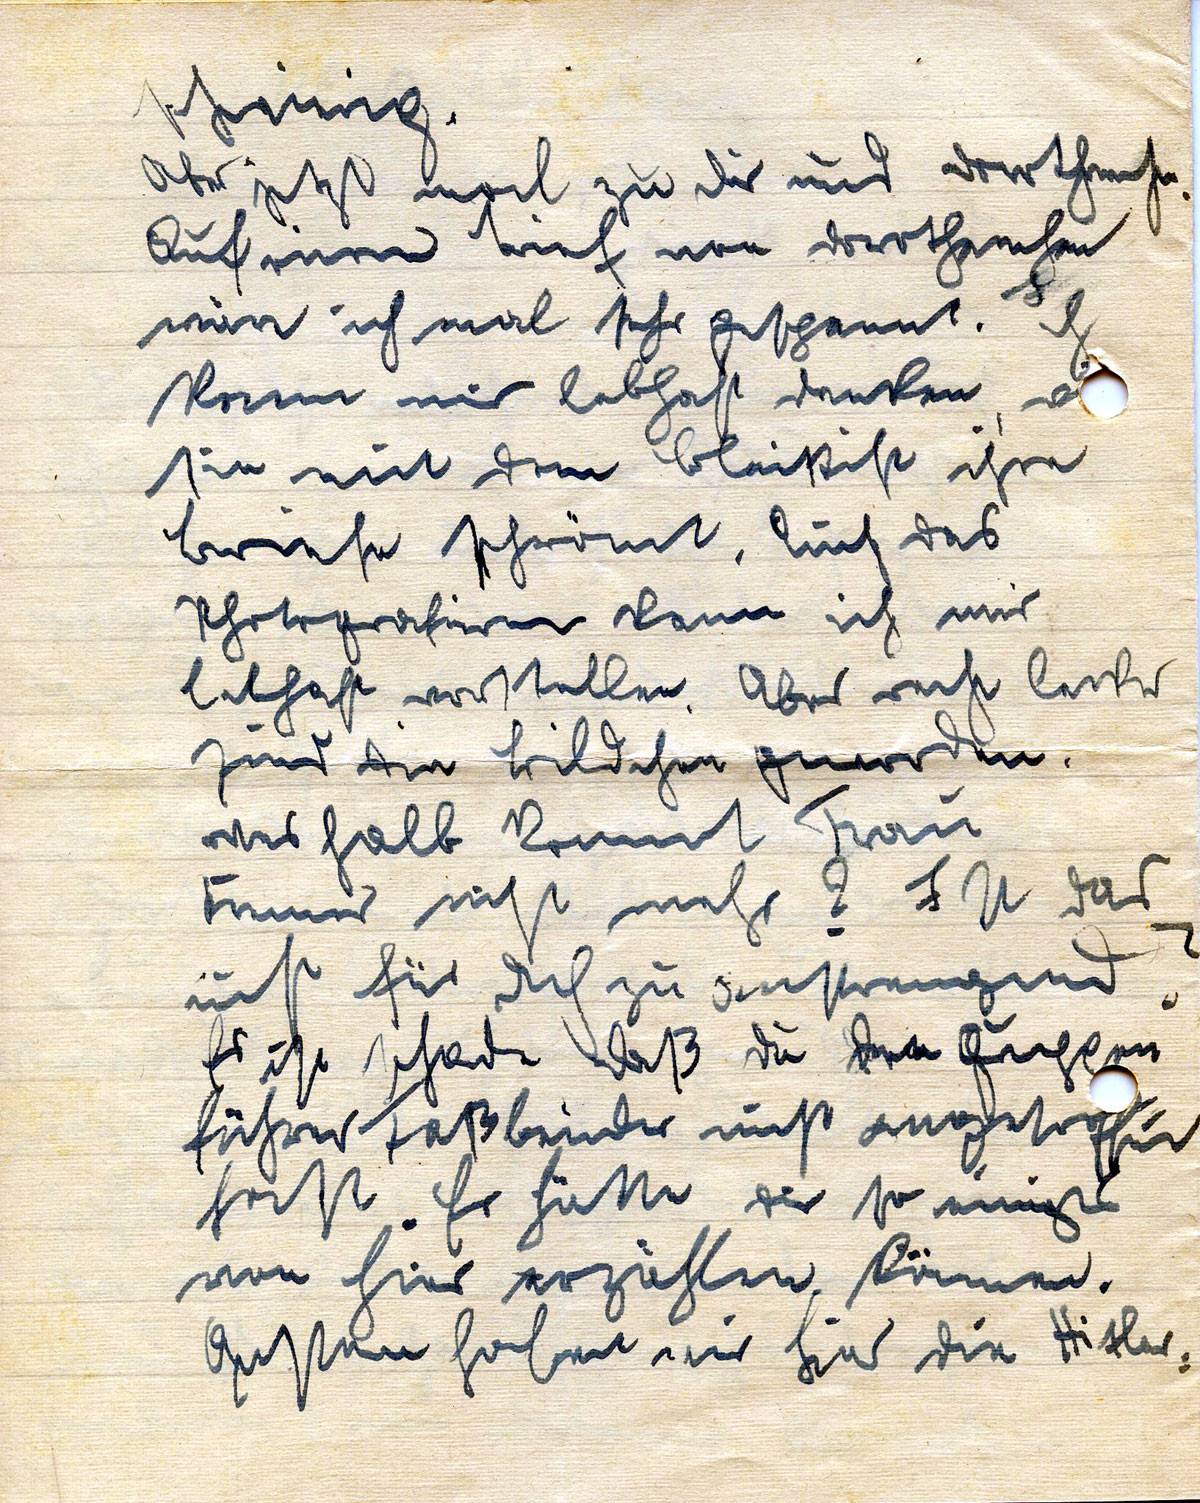 schaurig.
Aber jetzt mal zu dir und Dorothenche.
Auf einen brief von Dorothenchen
wäre ich mal sehr gespannt. Ich
kann mir lebhaft denken, 
sie mit dem bleistift ihre
briefe schrömt. Auch das
Photografieren kann ich mir
lebhaft vorstellen. Aber recht lecker
sind die bildchen geworden.
weshalb kommt Frau
nicht mehr? Ist das
nicht für dich zu anstrengend?
Es ist schade daß du den Gruppen
führer Faßbender nicht angetroffen
hast. Er hätte dir so einiges
von hier erzählen können.
Gestern haben wir hier die Hitler: